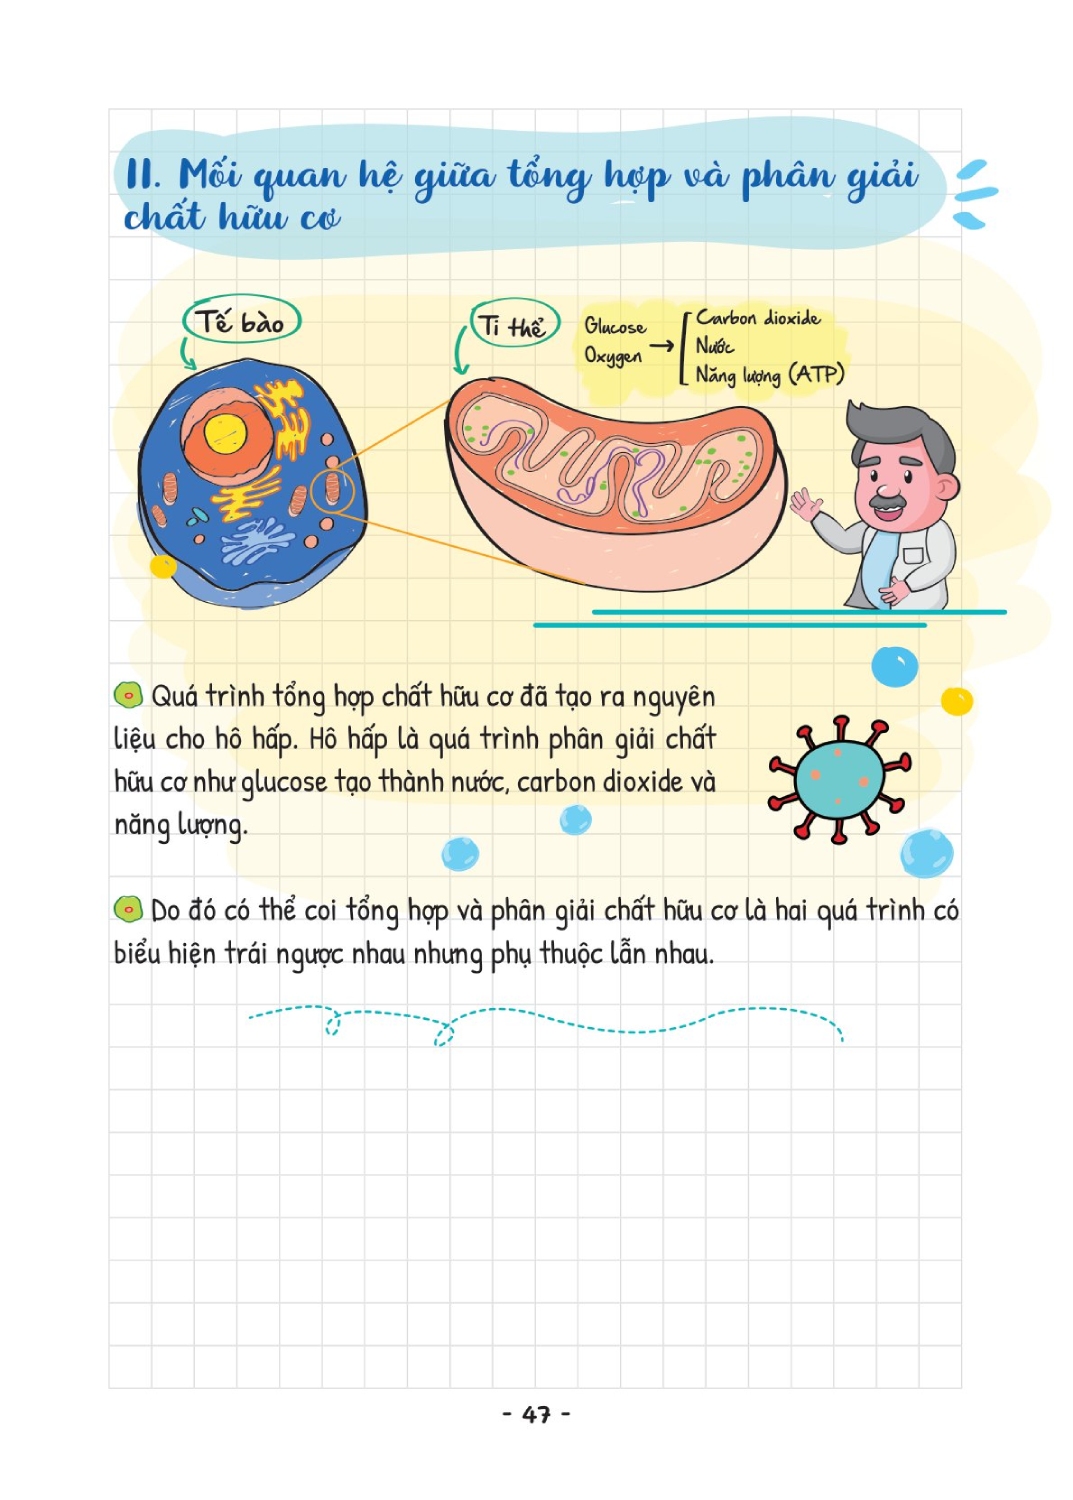 II. Mối quan hệ giữa tổng hợp và phân giải
chất hữu cơ
Tế bào
Ti thể
Glucose
Oxygen
→
Carbon dioxide
Nước
Năng lượng (ATP)
Quá trình tổng hợp chất hữu cơ đã tạo ra nguyên
liệu cho hô hấp. Hô hấp là quá trình phân giải chất
hữu cơ như glucose tạo thành nước, carbon dioxide và
năng lượng.
Do đó có thể coi tổng hợp và phân giải chất hữu cơ là hai quá trình có
biểu hiện trái ngược nhau nhưng phụ thuộc lẫn nhau.
- 47 -